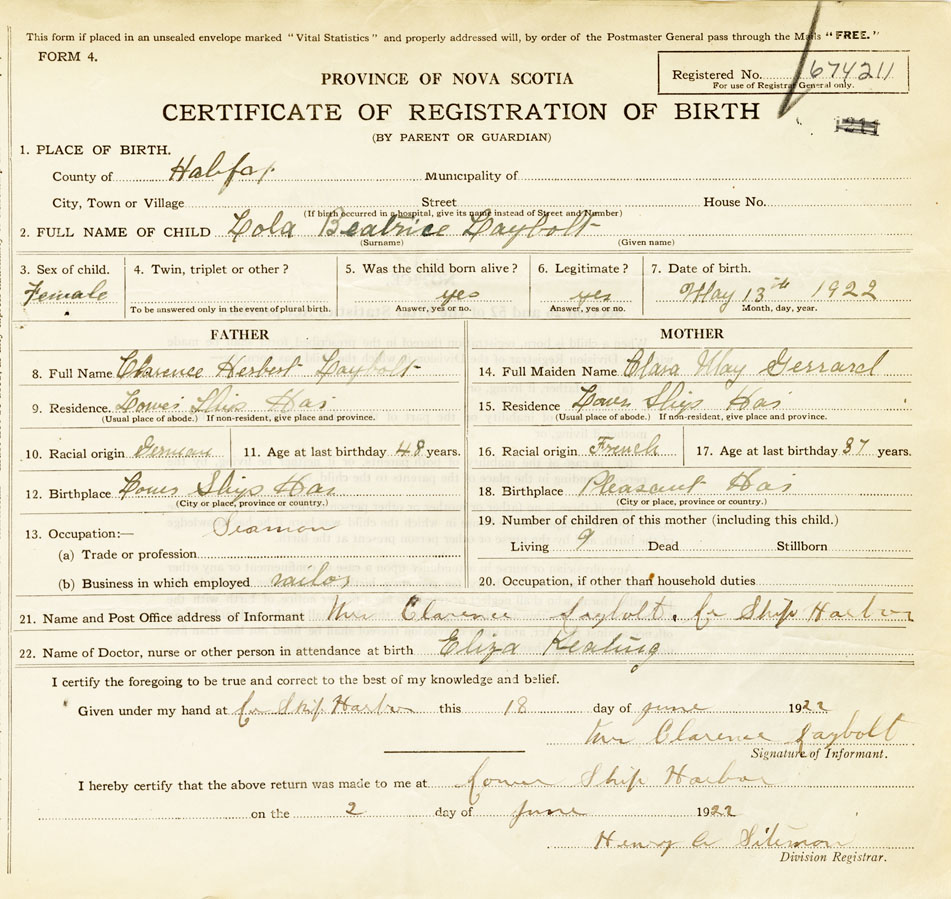 This form if placed in an unsealed envelope marked "Vital Statistics" and properly addressed will, by order of the Postmaster General pass through the Mails "FREE."
FORM 4.
Registered No. 674211
For use of Registrar General only.
PROVINCE OF NOVA SCOTIA
CERTIFICATE OF REGISTRATION OF BIRTH
(BY PARENT OR GUARDIAN)
1. PLACE OF BIRTH.
County of Halifax Municipality of
City, Town or Village Street House No.
(If birth occurred in a hospital, give its name instead of Street and Number)
2. FULL NAME OF CHILD Lola Beatrice Laybolt
(Surname) (Given name)
3. Sex of child. 4. Twin, triplet or other? 5. Was the child born alive? 6. Legitimate? 7. Date of birth.
Female yes yes May 13th 1922
To be answered only in the event of plural birth. Answer, yes or no. Answer, yes or no. Month, day, year.
FATHER MOTHER
8. Full Name Clarence Herbert Laybolt 14. Full Maiden Name Clara May Gerrard
9. Residence. Lower Ship Har 15. Residence Lower Ship Har
(Usual place of abode.) If non-resident, give place and province. (Usual place of abode.) If non-resident, give place and province.
10. Racial origin German 11. Age at last birthday 48 years. 16. Racial origin French 17. Age at last birthday 37 years.
12. Birthplace Lower Ship Har 18. Birthplace Pleasant Har
(City or place, province or country.) (City or place, province or country.)
13. Occupation:— Seaman 19. Number of children of this mother (including this child.)
(a) Trade or profession Living 9 Dead Stillborn
(b) Business in which employed sailor 20. Occupation, if other than household duties
21. Name and Post Office address of Informant Mrs Clarence Laybolt, Lr Ship Harbor
22. Name of Doctor, nurse or other person in attendance at birth Eliza Keating
I certify the foregoing to be true and correct to the best of my knowledge and belief.
Given under my hand at Lr Ship Harbor this 18 day of june 1922
Mrs Clarence Laybolt
Signature of Informant.
I hereby certify that the above return was made to me at Lower Ship Harbor
on the 2 day of june 1922
Henry A Siteman
Division Registrar.